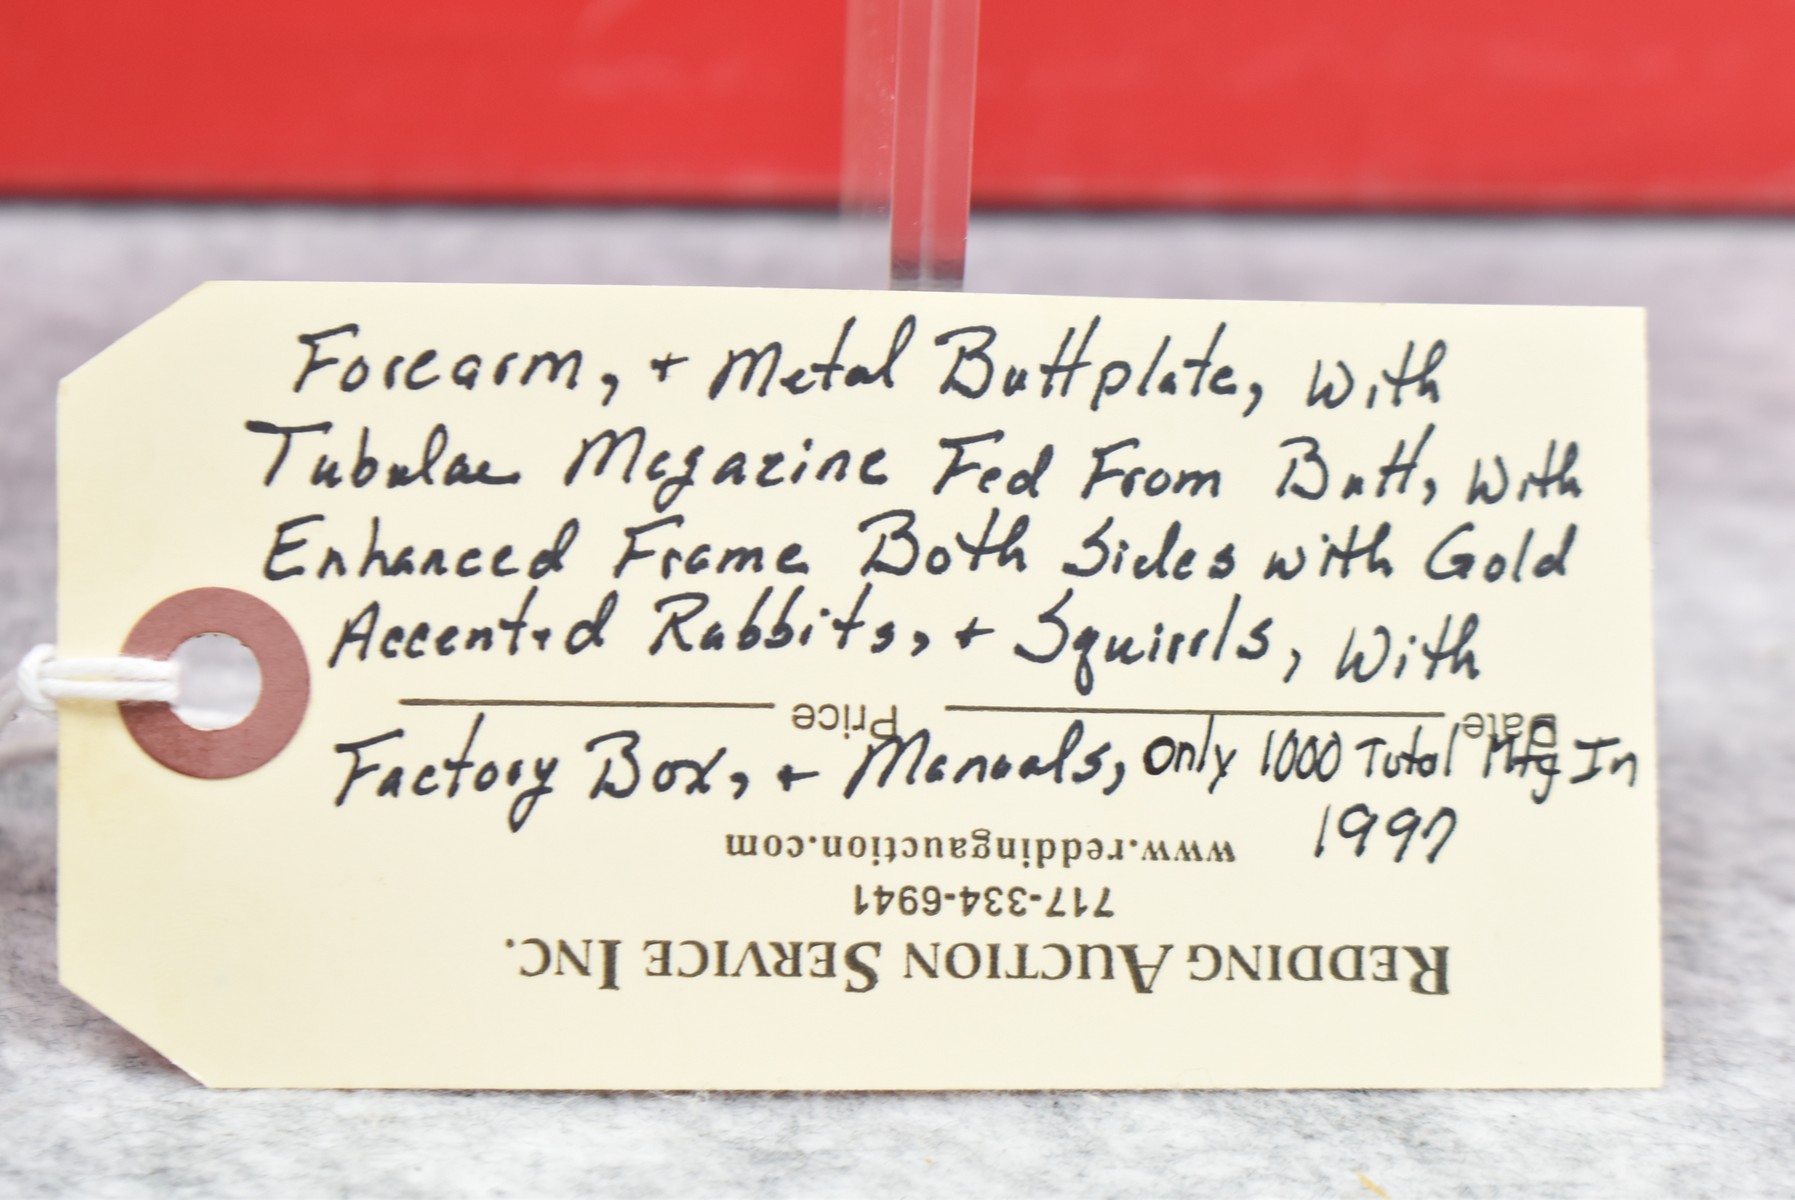 Forearm, + Metal Buttplate, With
Tubular Magazine Fed From Butt, With
Enhanced Frame Both Sides with Gold
Accented Rabbits, + Squirrls, With
Price Date
Factory Box, + Manuals, only 1000 Total Mfg In
1997
www.reddingauction.com
717-334-6941
REDDING AUCTION SERVICE INC.